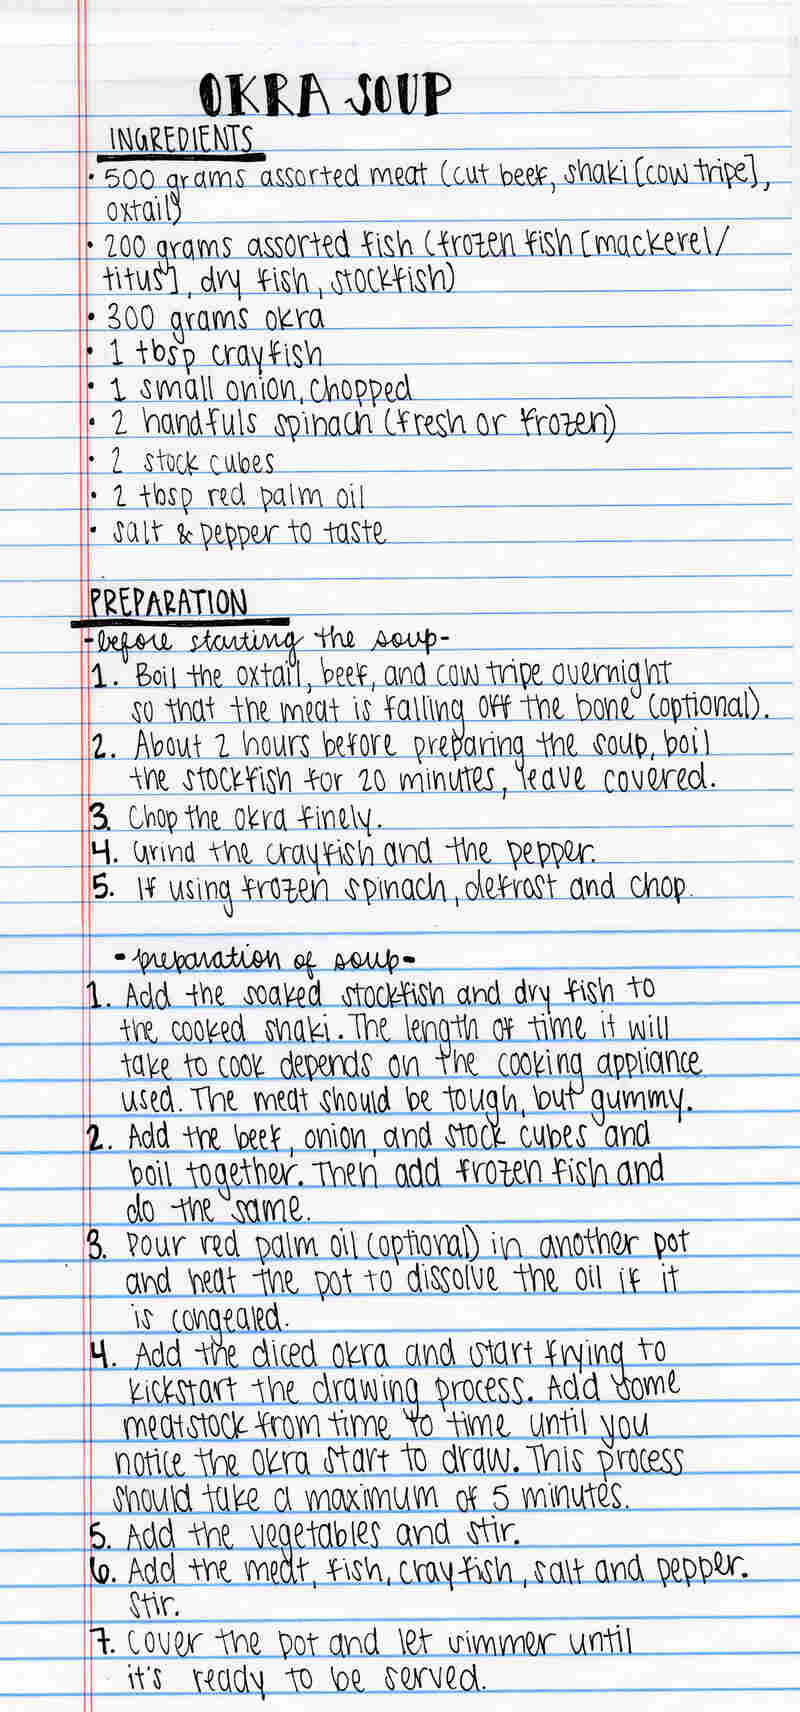 OKRA SOUP
INGREDIENTS
• 500 grams assorted meat (cut beef, shaki [cow tripe],
oxtail)
• 200 grams assorted fish (frozen fish [mackerel/
titus], dry fish, stockfish)
• 300 grams okra
• 1 tbsp crayfish
• 1 small onion, chopped
• 2 handfuls spinach (fresh or frozen)
• 2 stock cubes
• 2 tbsp red palm oil
• salt & pepper to taste
PREPARATION
-before starting the soup-
1. Boil the oxtail, beef, and cow tripe overnight
so that the meat is falling off the bone (optional).
2. About 2 hours before preparing the soup, boil
the stockfish for 20 minutes, leave covered.
3. Chop the okra finely.
4. Grind the crayfish and the pepper.
5. If using frozen spinach, defrost and chop.
-preparation of soup-
1. Add the soaked stockfish and dry fish to
the cooked shaki. The length of time it will
take to cook depends on the cooking appliance
used. The meat should be tough, but gummy.
2. Add the beef, onion, and stock cubes and
boil together. Then add frozen fish and
do the same.
3. Pour red palm oil (optional) in another pot
and heat the pot to dissolve the oil if it
is congealed.
4. Add the diced okra and start frying to
kickstart the drawing process. Add some
meatstock from time to time until you
notice the okra start to draw. This process
should take a maximum of 5 minutes.
5. Add the vegetables and stir.
6. Add the meat, fish, crayfish, salt and pepper.
Stir.
7. Cover the pot and let simmer until
it's ready to be served.